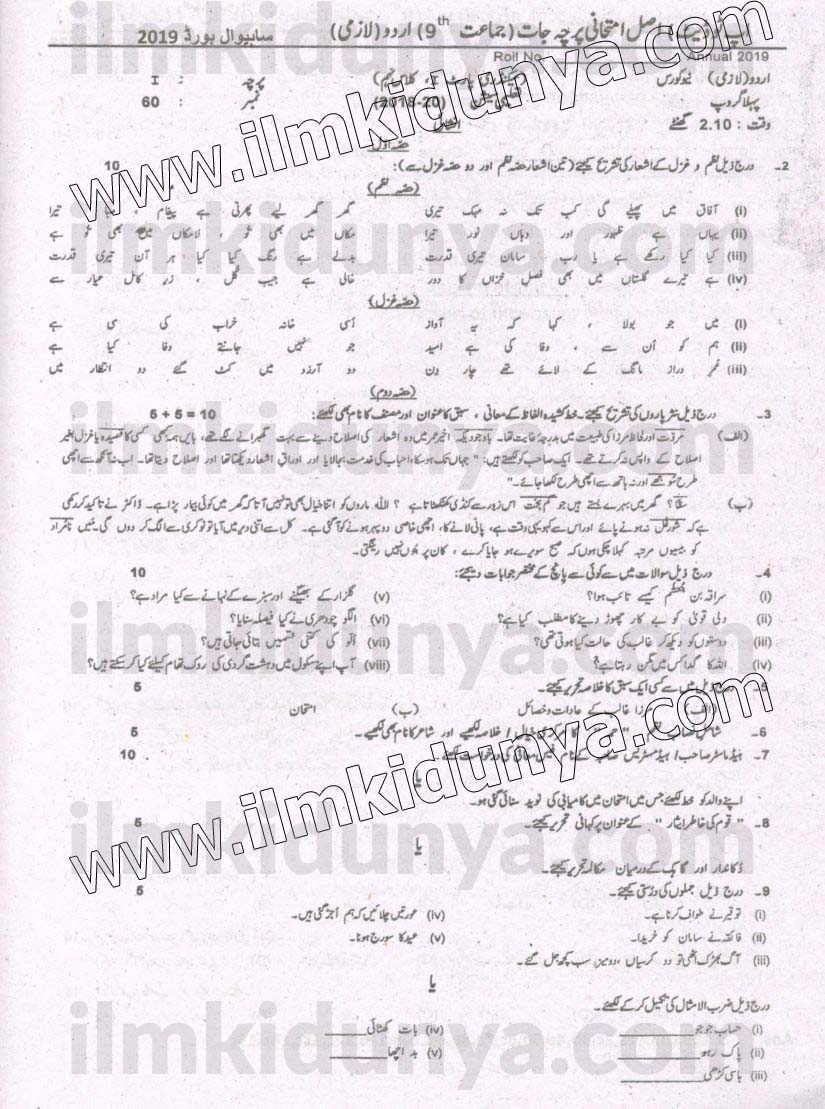 اپ ٹو ڈیٹ اصل امتحانی پرچہ جات (جماعت 9th) اردو (لازمی) ساہیوال بورڈ 2019
Roll No Annual 2019
اردو (لازمی) نیو کورس سیکنڈری پارٹ I، کلاس نہم) پرچہ : I
پہلا گروپ سیشن (2018-20) نمبر : 60
وقت : 2.10 گھنٹے انشائیہ
حصہ اول
2۔ درج ذیل نظم و غزل کے اشعار کی تشریح کیجئے (تین اشعار حصہ نظم اور دو حصہ غزل سے): 10
(حصہ نظم)
(i) آفاق میں پھیلے گی کب تک نہ مہک تیری گھر گھر لیے پھرتی ہے پیغام ، تیرا
(ii) یہاں ہے ظہور اور وہاں نور تیرا مکاں میں بھی تو ، لامکاں میں بھی تو ہے
(iii) کیا کیا رکھے ہے یا رب سامان تیری قدرت بدلے ہے رنگ کیا کیا ہر آن تیری قدرت
(iv) ہے تیرے گلستاں میں بھی فصل خزاں کا دور خالی ہے جیب گل ، زر کامل عیار سے
(حصہ غزل)
(i) میں جو بولا ، کہا کہ یہ آواز اسی خانہ خراب کی سی ہے
(ii) ہم کو اُن سے ، وفا کی ہے امید جو نہیں جانتے وفا کیا ہے
(iii) عمر دراز مانگ کے لائے تھے چار دن دو آرزو میں کٹ گئے دو انتظار میں
(حصہ دوم)
3۔ درج ذیل نثر پاروں کی تشریح کیجئے۔ خط کشیدہ الفاظ کے معانی ، سبق کا عنوان اور مصنف کا نام بھی لکھئے: 5 + 5 = 10
(الف) مروّت اور لحاظ مرزا کی طبیعت میں بدرجہ غایت تھا۔ باوجودیکہ اخیر عمر میں وہ اشعار کی اصلاح دینے سے بہت گھبرانے لگے تھے، بایں ہمہ بھی کسی کا قصیدہ یا غزل بغیر
اصلاح کے واپس نہ کرتے تھے۔ ایک صاحب کو لکھتے ہیں: "جہاں تک ہو سکا، احباب کی خدمت بجا لایا اور اوراقِ اشعار دیکھتا تھا اور اصلاح دیتا تھا۔ اب نہ آنکھ سے اچھی
طرح سوجھے اور نہ ہاتھ سے اچھی طرح لکھا جائے۔"
(ب) سقّا؟ گھر میں بہرے بستے ہیں جو کم بخت اس زور سے کنڈی کھٹکھٹاتا ہے ؟ اللہ ماروں کو اتنا خیال بھی تو نہیں آتا کہ گھر میں کوئی بیمار پڑا ہے۔ ڈاکٹر نے تاکید کر رکھی
ہے کہ شور غل نہ ہونے پائے اور اس سے کہو یہ کوئی وقت ہے، پانی لانے کا، اچھی خاصی دوپہر ہونے کو آ گئی ہے۔ کل سے اتنی دیر میں آیا تو نوکری سے الگ کر دوں گی۔ میں نامراد
کو بیسیوں مرتبہ کہلا چکی ہوں کہ صبح سویرے ہو جایا کرے ، کان پر جُوں نہیں رینگتی۔
4۔ درج ذیل سوالات میں سے کوئی سے پانچ کے مختصر جوابات دیجئے: 10
(i) سراقہ بن جُعشم کیسے تائب ہوا؟ (v) گلزار کے بھیگنے اور سبزے کے نہانے سے کیا مراد ہے؟
(ii) دلی قویٰ کو بے کار چھوڑ دینے کا مطلب کیا ہے؟ (vi) الگو چودھری نے کیا فیصلہ سنایا؟
(iii) دوستوں کو دیکھ کر غالب کی حالت کیا ہوتی تھی؟ (vii) اُلّو کی کتنی قسمیں بتائی جاتی ہیں؟
(iv) اللہ کا گدا کس میں مگن رہتا ہے؟ (viii) آپ اپنے سکول میں دہشت گردی کی روک تھام کیلئے کیا کر سکتے ہیں؟
5۔ درج ذیل میں سے کسی ایک سبق کا خلاصہ تحریر کیجئے۔ 5
(الف) مرزا غالب کے عادات و خصائل (ب) امتحان
6۔ شاملِ نصاب نظم کا مرکزی خیال / خلاصہ لکھیے اور شاعر کا نام بھی لکھیے۔ 5
7۔ ہیڈ ماسٹر صاحب / ہیڈ مسٹریس صاحبہ کے نام فیس معافی کی درخواست لکھئے۔ 10
یا
اپنے والد کو خط لکھئے جس میں امتحان میں کامیابی کی نوید سنائی گئی ہو۔
8۔ "قوم کی خاطر ایثار" کے عنوان پر کہانی تحریر کیجئے۔ 5
یا
دُکاندار اور گاہک کے درمیان مکالمہ تحریر کیجئے۔
9۔ درج ذیل جملوں کی درستی کیجئے۔ 5
(i) توقیر نے طواف کرنا ہے۔ (iv) عورتیں چلائیں کہ ہم اُجڑ گئی ہیں۔
(ii) فائقہ نے سامان کو خریدا۔ (v) عید کا سورج ہونا۔
(iii) آگ بھڑک اٹھی تو دو کرسیاں ، دو میز سب کچھ جل گئے۔
یا
درج ذیل ضرب الامثال کی تکمیل کر کے لکھئے۔
(i) حساب جو جو (iv) بات کھٹائی
(ii) پاک رہو (v) بد اچھا
(iii) باسی کڑھی
www.ilmkidunya.com
ilmkidunya.com